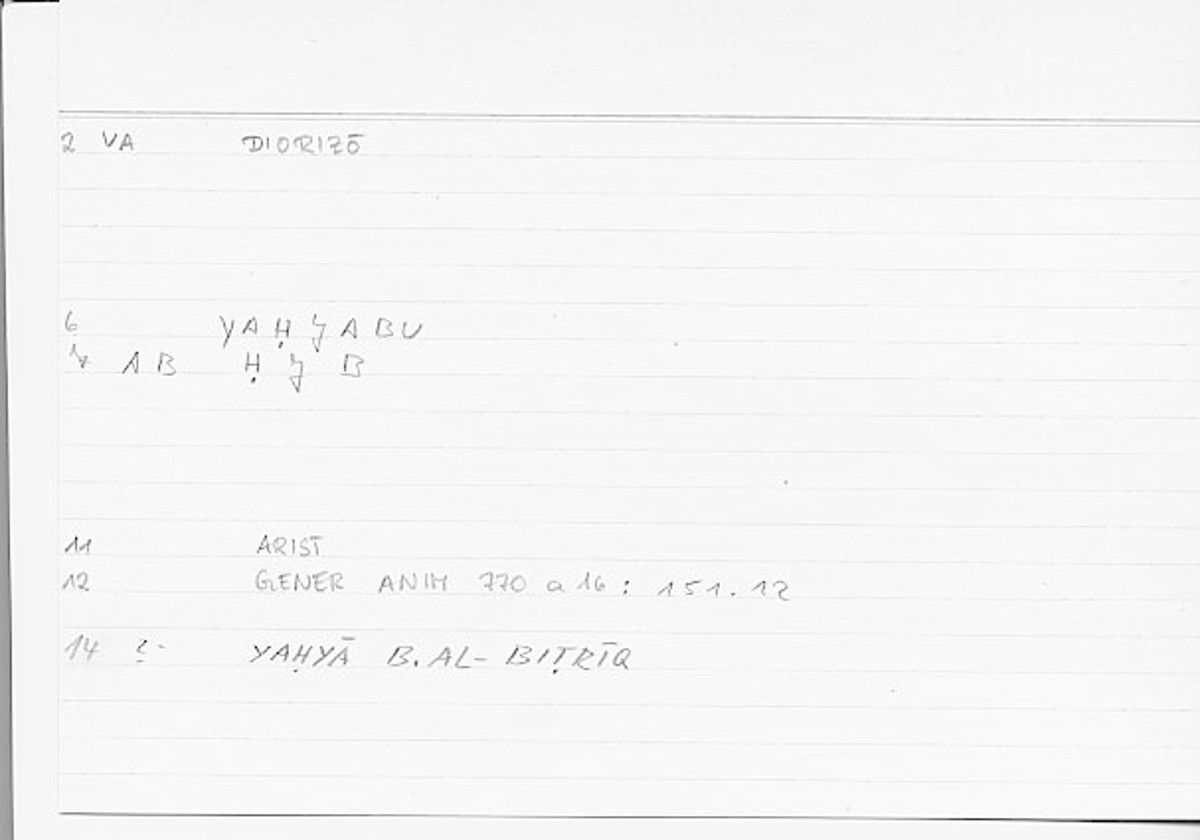 2 VA DIORIZŌ
6 YAḤJABU
7 AB Ḥ J B
11 ARIST
12 GENER ANIM 770 a 16 : 151.12
14 YAḤYĀ B. AL-BIṬRĪQ